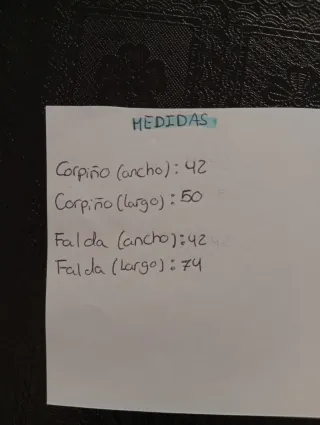 MEDIDAS
Corpiño (ancho): 42
Corpiño (largo): 50
Falda (ancho): 42
Falda (largo): 74